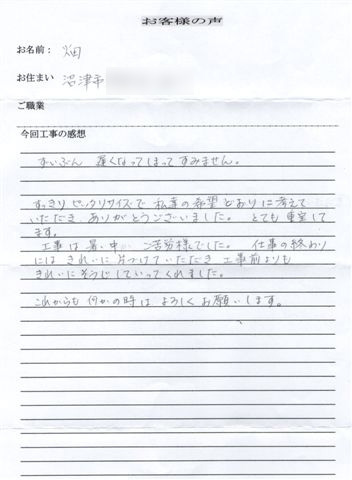 お客様の声
お名前： 畑
お住まい 沼津市
ご職業
今回工事の感想
ずいぶん 遅くなってしまってすみません。
すっきりピッタリサイズで私達の希望どおりに考えて
いただき、ありがとうございました。 とても重宝して
ます。
工事は暑い中 ご苦労様でした。 仕事の終わり
には きれいに片づけていただき 工事前よりも
きれいにそうじしていってくれました。
これからも 何かの時は よろしくお願いします。